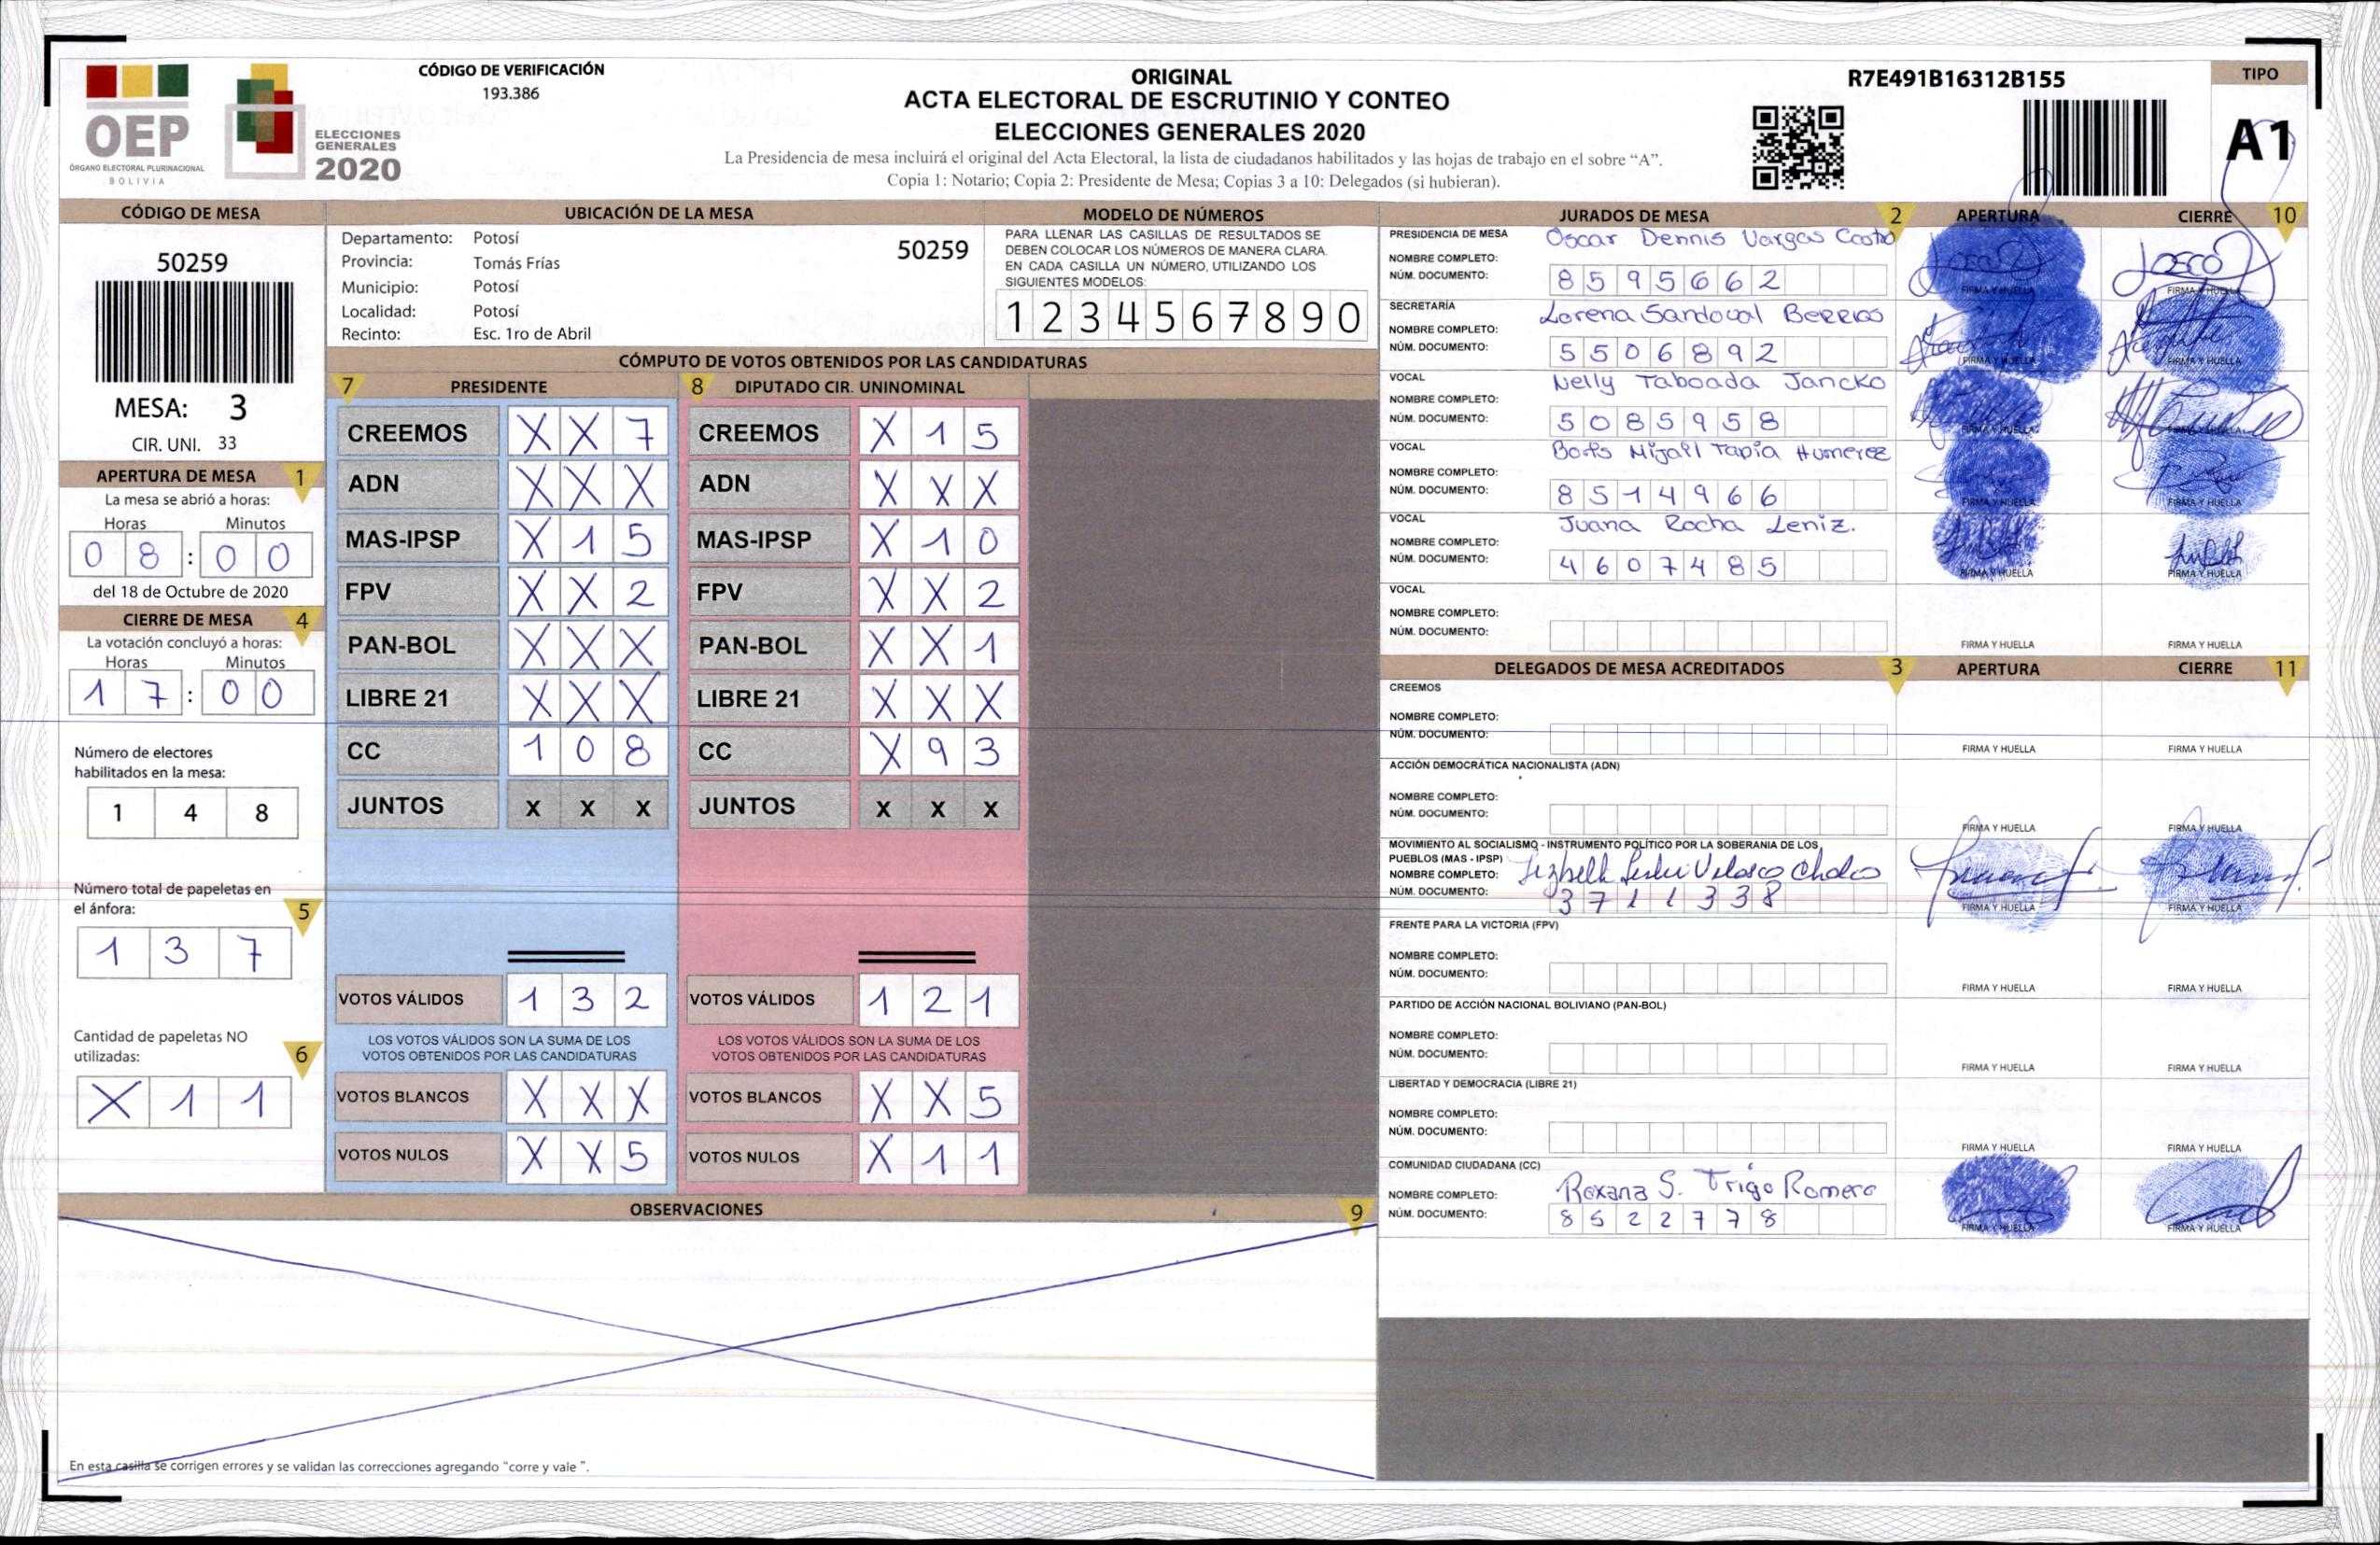 OEP
ÓRGANO ELECTORAL PLURINACIONAL
BOLIVIA
ELECCIONES
GENERALES
2020
CÓDIGO DE VERIFICACIÓN
193.386
ORIGINAL
ACTA ELECTORAL DE ESCRUTINIO Y CONTEO
ELECCIONES GENERALES 2020
La Presidencia de mesa incluirá el original del Acta Electoral, la lista de ciudadanos habilitados y las hojas de trabajo en el sobre “A”.
Copia 1: Notario; Copia 2: Presidente de Mesa; Copias 3 a 10: Delegados (si hubieran).
R7E491B16312B155
TIPO
A1
CÓDIGO DE MESA
50259
MESA: 3
CIR. UNI. 33
APERTURA DE MESA 1
La mesa se abrió a horas:
Horas Minutos
0 8 : 0 0
del 18 de Octubre de 2020
CIERRE DE MESA 4
La votación concluyó a horas:
Horas Minutos
1 7 : 0 0
Número de electores
habilitados en la mesa:
1 4 8
Número total de papeletas en
el ánfora: 5
1 3 7
Cantidad de papeletas NO
utilizadas: 6
X 1 1
UBICACIÓN DE LA MESA
Departamento: Potosí 50259
Provincia: Tomás Frías
Municipio: Potosí
Localidad: Potosí
Recinto: Esc. 1ro de Abril
MODELO DE NÚMEROS
PARA LLENAR LAS CASILLAS DE RESULTADOS SE
DEBEN COLOCAR LOS NÚMEROS DE MANERA CLARA.
EN CADA CASILLA UN NÚMERO, UTILIZANDO LOS
SIGUIENTES MODELOS:
1 2 3 4 5 6 7 8 9 0
CÓMPUTO DE VOTOS OBTENIDOS POR LAS CANDIDATURAS
7 PRESIDENTE 8 DIPUTADO CIR. UNINOMINAL
CREEMOS X X 7 CREEMOS X 1 5
ADN X X X ADN X X X
MAS-IPSP X 1 5 MAS-IPSP X 1 0
FPV X X 2 FPV X X 2
PAN-BOL X X X PAN-BOL X X 1
LIBRE 21 X X X LIBRE 21 X X X
CC 1 0 8 CC X 9 3
JUNTOS X X X JUNTOS X X X
VOTOS VÁLIDOS 1 3 2 VOTOS VÁLIDOS 1 2 1
LOS VOTOS VÁLIDOS SON LA SUMA DE LOS LOS VOTOS VÁLIDOS SON LA SUMA DE LOS
VOTOS OBTENIDOS POR LAS CANDIDATURAS VOTOS OBTENIDOS POR LAS CANDIDATURAS
VOTOS BLANCOS X X X VOTOS BLANCOS X X 5
VOTOS NULOS X X 5 VOTOS NULOS X 1 1
OBSERVACIONES 9
En esta casilla se corrigen errores y se validan las correcciones agregando “corre y vale ”.
JURADOS DE MESA 2 APERTURA CIERRE 10
PRESIDENCIA DE MESA Oscar Dennis Vargas Castro
NOMBRE COMPLETO:
NÚM. DOCUMENTO: 8 5 9 5 6 6 2
FIRMA Y HUELLA FIRMA Y HUELLA
SECRETARÍA Lorena Sandoval Berrios
NOMBRE COMPLETO:
NÚM. DOCUMENTO: 5 5 0 6 8 9 2
FIRMA Y HUELLA FIRMA Y HUELLA
VOCAL Nelly Taboada Jancko
NOMBRE COMPLETO:
NÚM. DOCUMENTO: 5 0 8 5 9 5 8
FIRMA Y HUELLA FIRMA Y HUELLA
VOCAL Tapia Humerez
NOMBRE COMPLETO:
NÚM. DOCUMENTO: 8 5 1 4 9 6 6
FIRMA Y HUELLA FIRMA Y HUELLA
VOCAL Juana Rocha Leniz.
NOMBRE COMPLETO:
NÚM. DOCUMENTO: 4 6 0 7 4 8 5
FIRMA Y HUELLA FIRMA Y HUELLA
VOCAL
NOMBRE COMPLETO:
NÚM. DOCUMENTO:
FIRMA Y HUELLA FIRMA Y HUELLA
DELEGADOS DE MESA ACREDITADOS 3 APERTURA CIERRE 11
CREEMOS
NOMBRE COMPLETO:
NÚM. DOCUMENTO:
FIRMA Y HUELLA FIRMA Y HUELLA
ACCIÓN DEMOCRÁTICA NACIONALISTA (ADN)
NOMBRE COMPLETO:
NÚM. DOCUMENTO:
FIRMA Y HUELLA FIRMA Y HUELLA
MOVIMIENTO AL SOCIALISMO - INSTRUMENTO POLÍTICO POR LA SOBERANIA DE LOS
PUEBLOS (MAS - IPSP)
NOMBRE COMPLETO: Velasco
NÚM. DOCUMENTO: 3 7 1 1 3 3 8
FIRMA Y HUELLA FIRMA Y HUELLA
FRENTE PARA LA VICTORIA (FPV)
NOMBRE COMPLETO:
NÚM. DOCUMENTO:
FIRMA Y HUELLA FIRMA Y HUELLA
PARTIDO DE ACCIÓN NACIONAL BOLIVIANO (PAN-BOL)
NOMBRE COMPLETO:
NÚM. DOCUMENTO:
FIRMA Y HUELLA FIRMA Y HUELLA
LIBERTAD Y DEMOCRACIA (LIBRE 21)
NOMBRE COMPLETO:
NÚM. DOCUMENTO:
FIRMA Y HUELLA FIRMA Y HUELLA
COMUNIDAD CIUDADANA (CC)
NOMBRE COMPLETO: Roxana S. Trigo Romero
NÚM. DOCUMENTO: 8 5 2 2 7 7 8
FIRMA Y HUELLA FIRMA Y HUELLA